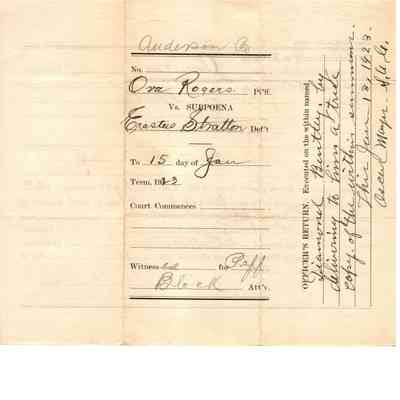 Anderson Co
No.
Ova Rogers Pl'ff.
Vs. SUBPOENA
Erastus Stratton Def't
To 15 day of Jan
Term, 1923
Court Commences
Witness for Plff
Block Att'y.
OFFICER'S RETURN. Executed on the within named
Diamond Bentley, by
delivering to him a true
copy of the within summons.
This Jan 13, 1923.
Oscar Moyer S.A.C.